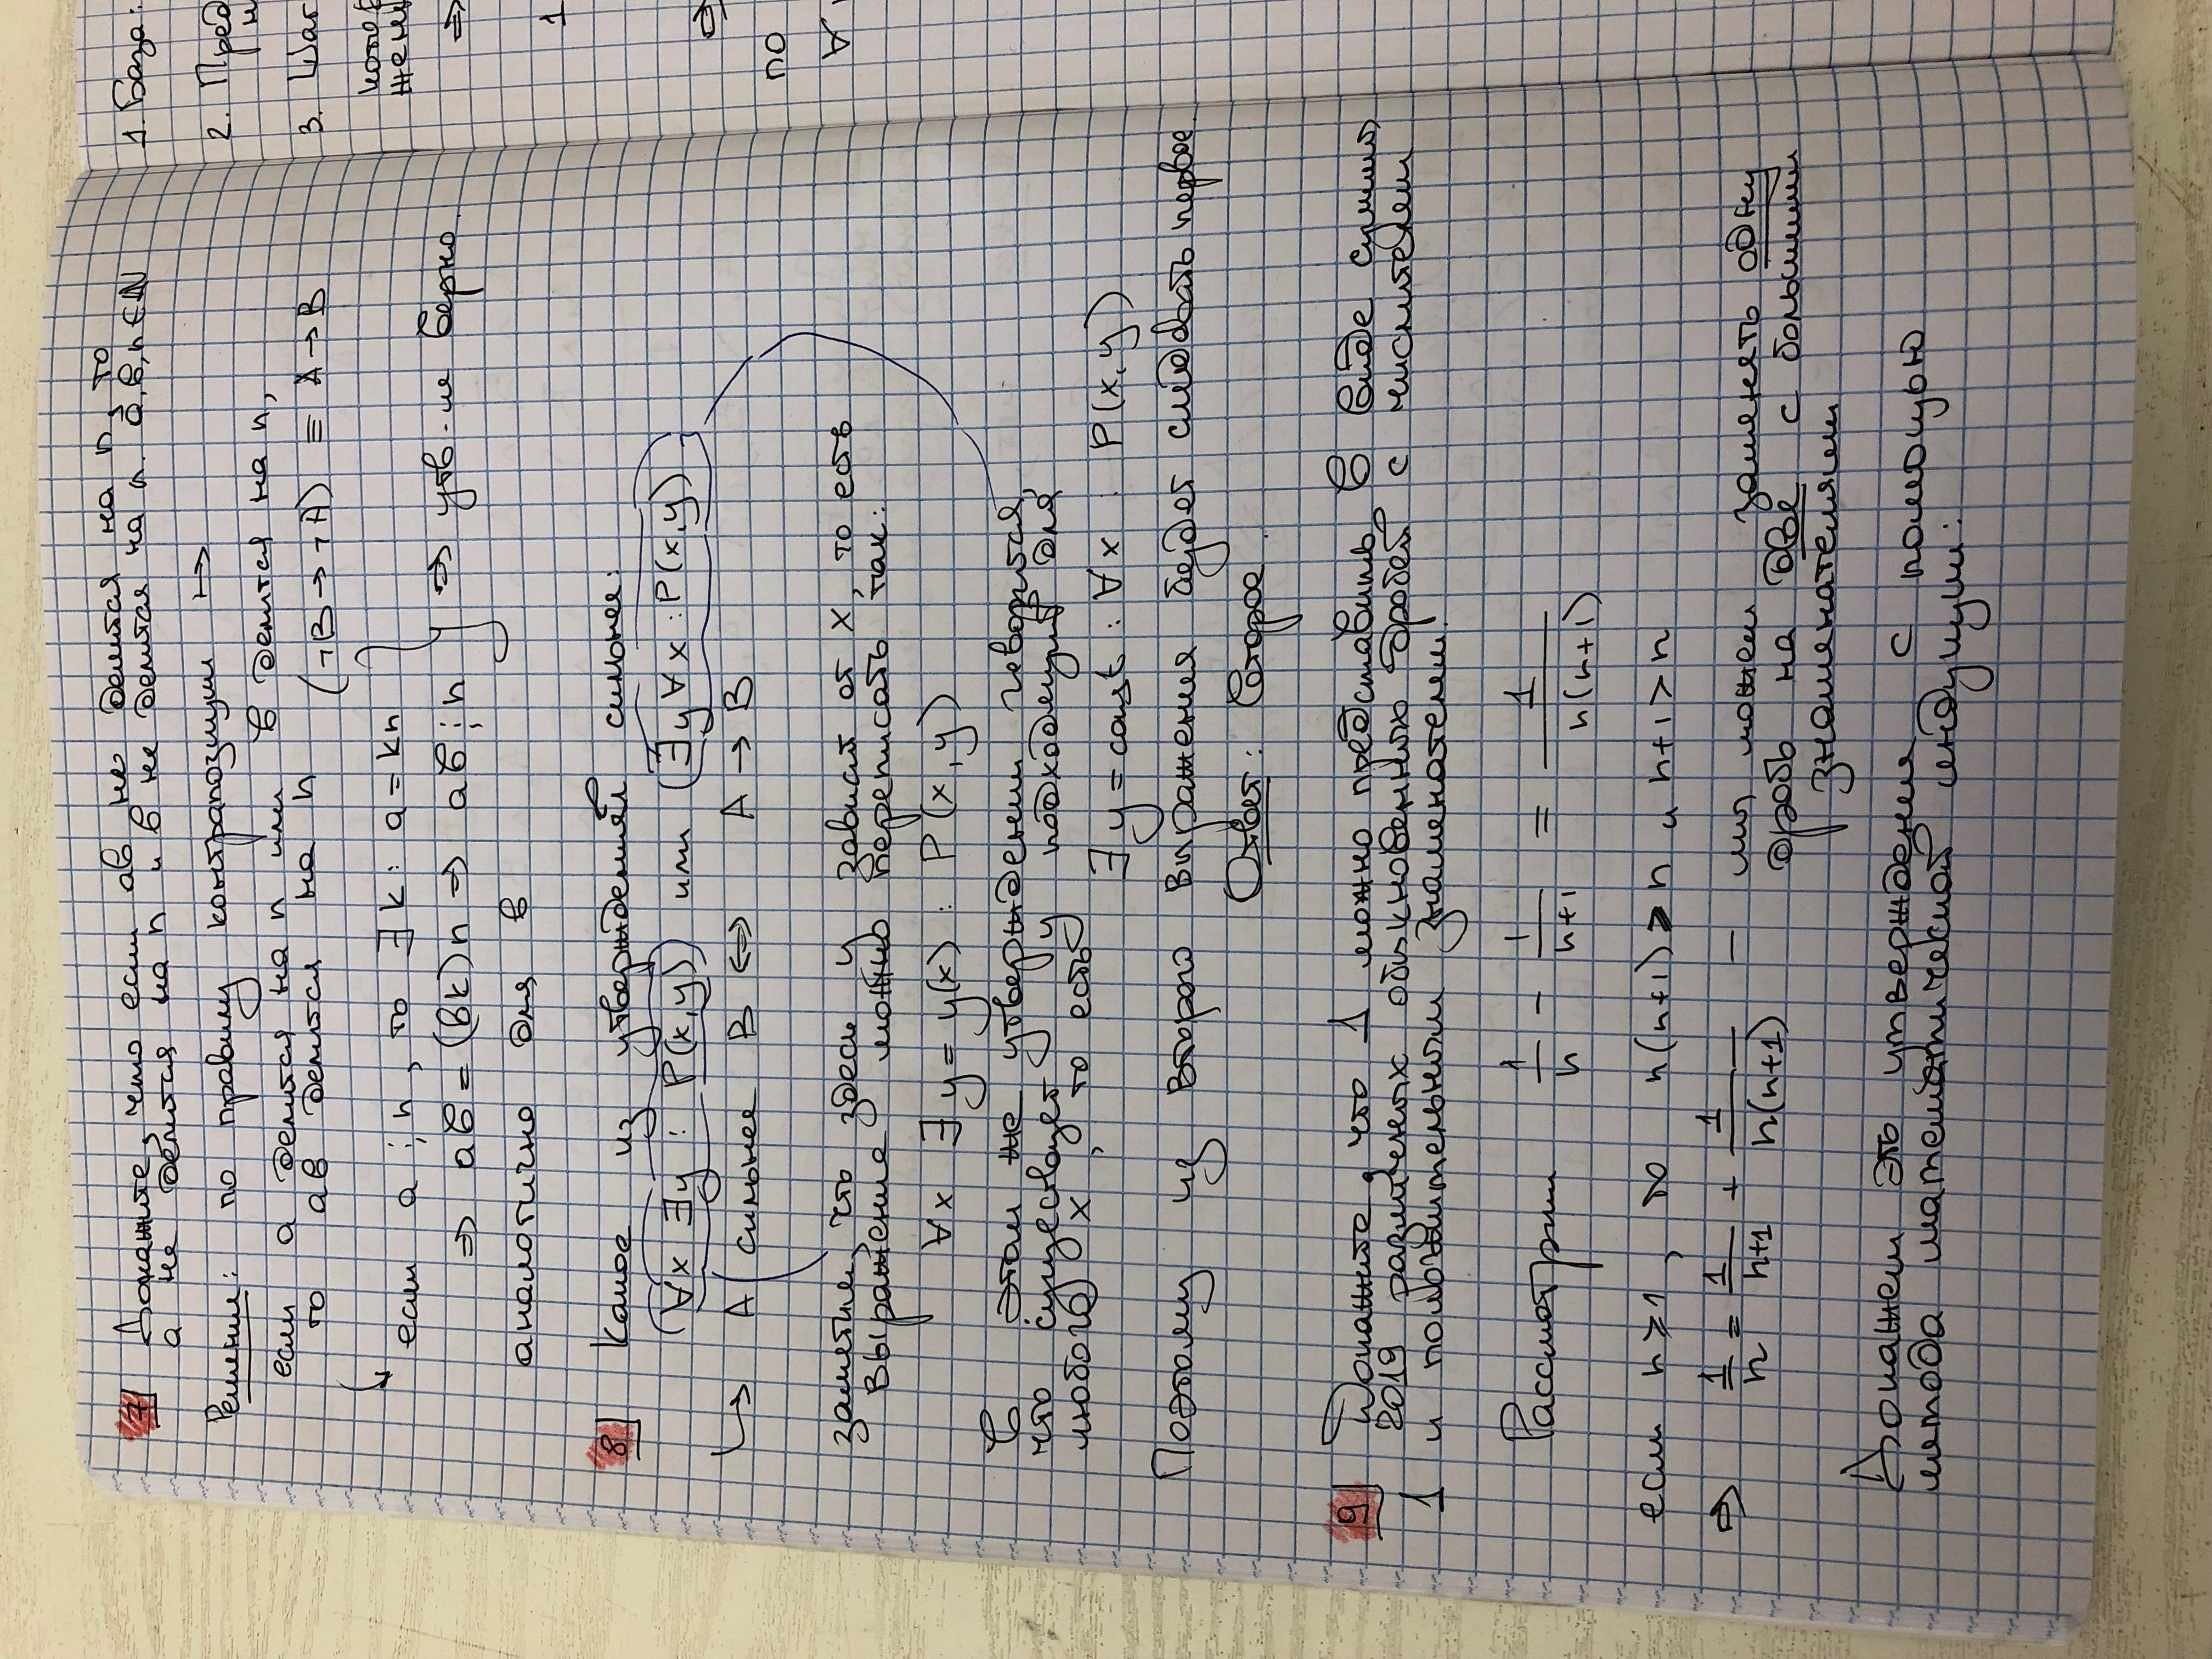 7 Докажите, что если ab не делится на n, то
a не делится на n и b не делится на n. a, b, n ∈ ℕ
Решение: по правилу контрапозиции ↦
если a делится на n или b делится на n,
то ab делится на n (¬B → ¬A) ≡ A → B
если a ⋮ n, то ∃ k: a = kn
⇒ ab = (bk)n ⇒ ab ⋮ n } ⇒ утв-ие верно.
аналогично для b
8 Какое из утверждений сильнее:
(∀x ∃y : P(x,y)) или (∃y ∀x : P(x,y))
↳ A сильнее B ⇔ A → B
заметим, что здесь y зависит от x, то есть
выражение можно переписать так:
∀x ∃ y = y(x) : P(x, y)
В этом же утверждении говорится,
что существует y подходящий для
любого x, то есть
∃ y = const : ∀x : P(x, y)
Поэтому из второго выражения будет следовать первое.
Ответ: второе.
9 Докажите, что 1 можно представить в виде суммы
2019 различных обыкновенных дробей с числителем
1 и положительным знаменателем.
Рассмотрим 1/n - 1/(n+1) = 1/(n(n+1))
если n ⩾ 1, то n(n+1) > n и n+1 > n
⇒ 1/n = 1/(n+1) + 1/(n(n+1)) – мы можем заменять одну
дробь на две с большими
знаменателями
Докажем это утверждение с помощью
метода математической индукции:
1. База:
2. Пред
3. Шаг
⇒
1
⇒
по
∀